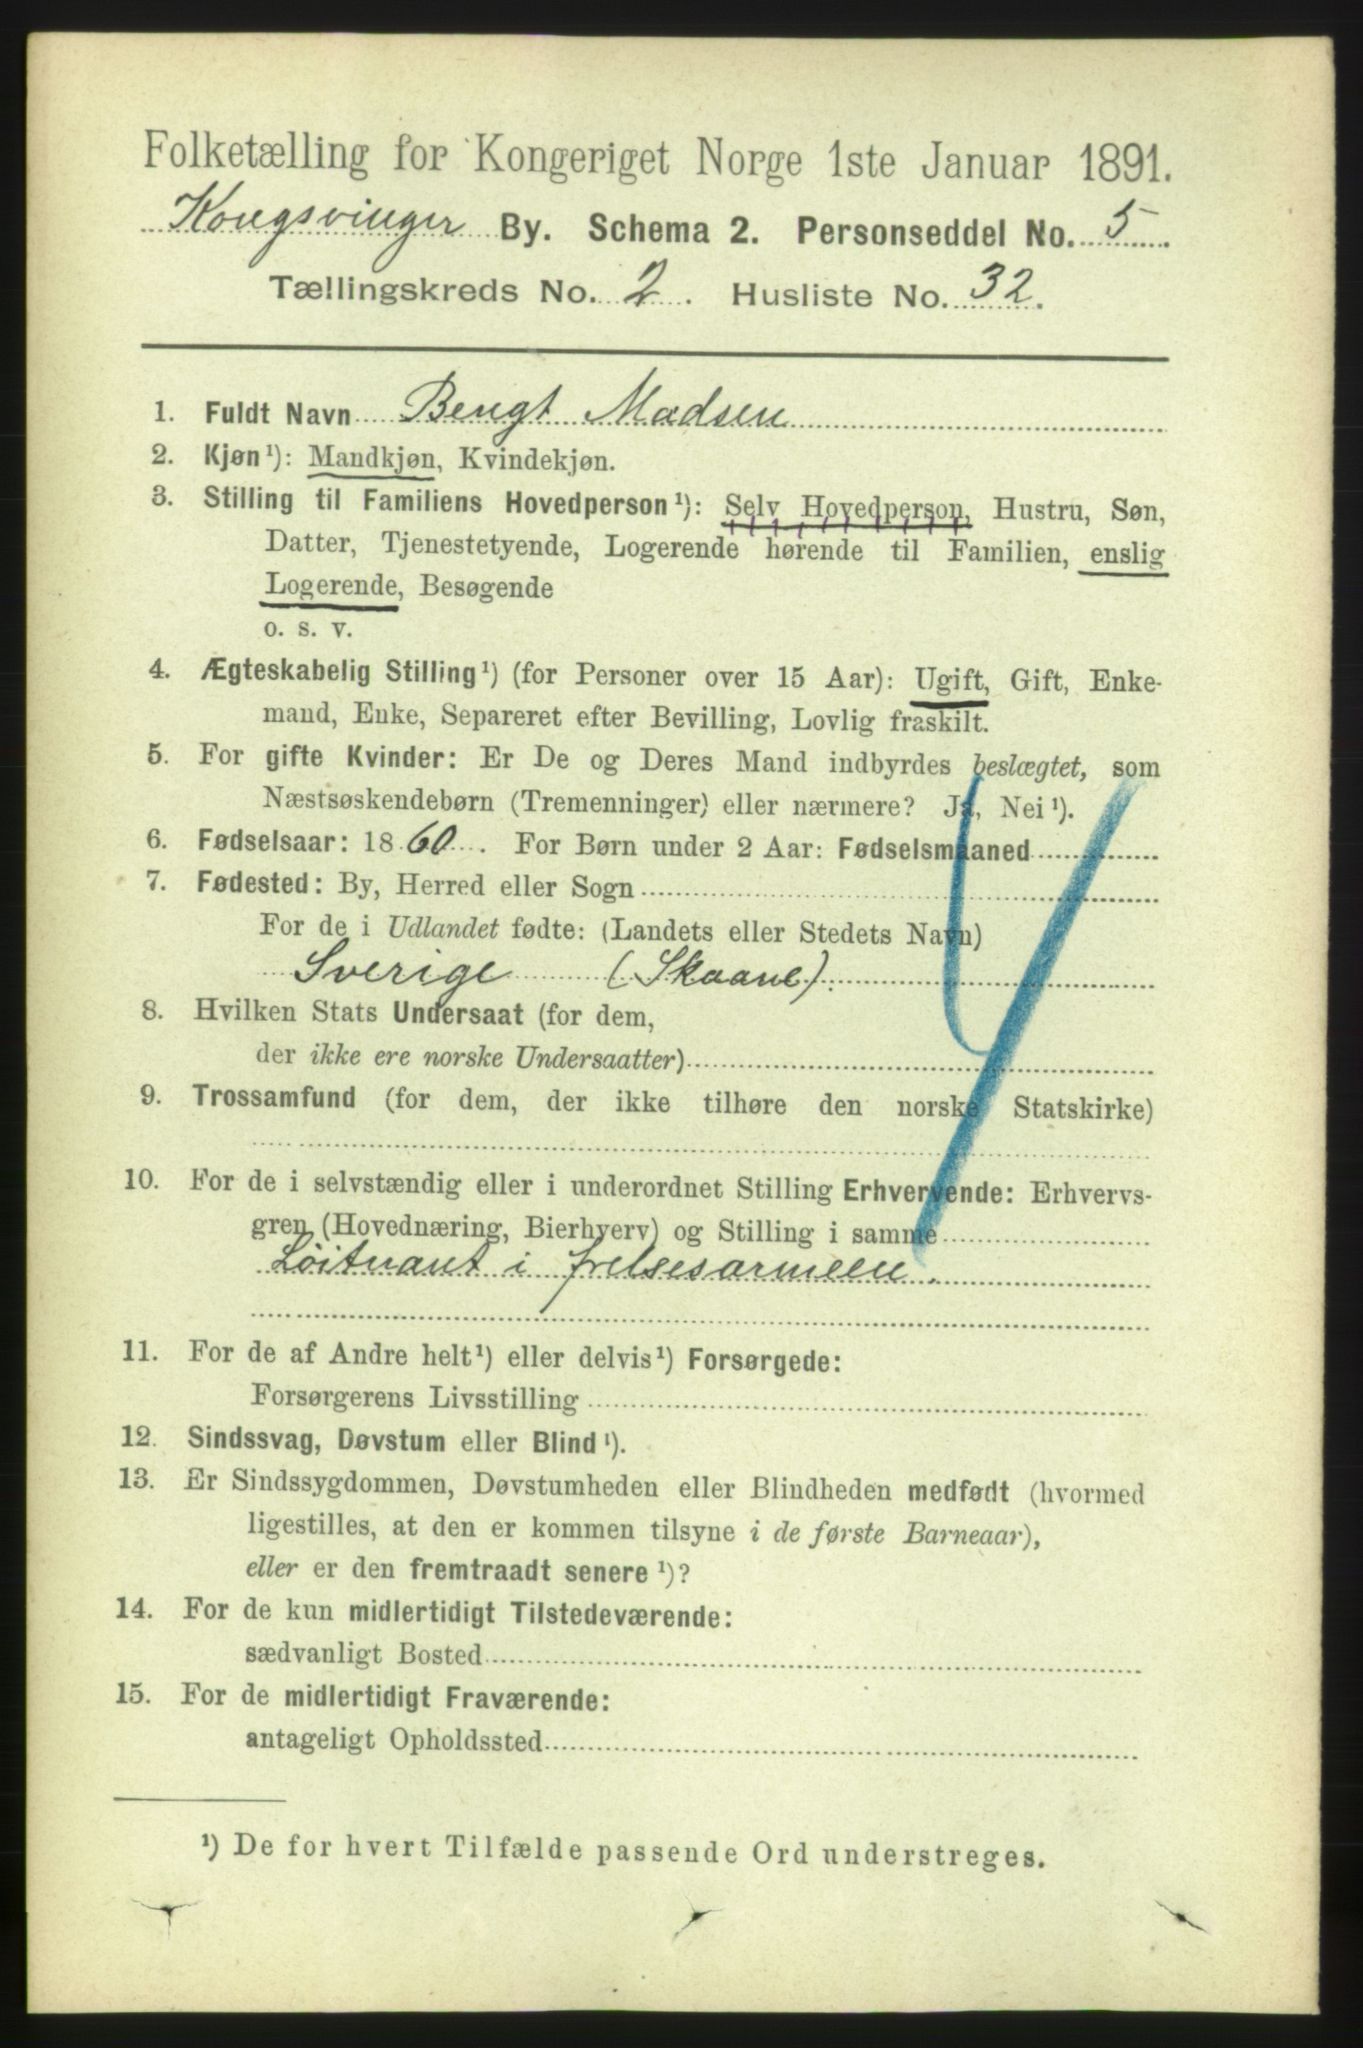 Folketælling for Kongeriget Norge 1ste Januar 1891.
Kongsvinger By. Schema 2. Personseddel No. 5
Tællingskreds No. 2. Husliste No. 32.
1. Fuldt Navn Bengt Madsen
2. Kjøn¹): Mandkjøn, Kvindekjøn.
3. Stilling til Familiens Hovedperson¹): Selv Hovedperson, Hustru, Søn,
Datter, Tjenestetyende, Logerende hørende til Familien, enslig
Logerende, Besøgende
o. s. v.
4. Ægteskabelig Stilling¹) (for Personer over 15 Aar): Ugift, Gift, Enke-
mand, Enke, Separeret efter Bevilling, Lovlig fraskilt.
5. For gifte Kvinder: Er De og Deres Mand indbyrdes beslægtet, som
Næstsøskendebørn (Tremenninger) eller nærmere? Ja, Nei¹).
6. Fødselsaar: 1860. For Børn under 2 Aar: Fødselsmaaned
7. Fødested: By, Herred eller Sogn
For de i Udlandet fødte: (Landets eller Stedets Navn)
Sverige (Skaane).
8. Hvilken Stats Undersaat (for dem,
der ikke ere norske Undersaatter)
9. Trossamfund (for dem, der ikke tilhøre den norske Statskirke)
10. For de i selvstændig eller i underordnet Stilling Erhvervende: Erhvervs-
gren (Hovednæring, Bierhverv) og Stilling i samme
Løitnant i frelsesarmeen.
11. For de af Andre helt¹) eller delvis¹) Forsørgede:
Forsørgerens Livsstilling
12. Sindssvag, Døvstum eller Blind¹).
13. Er Sindssygdommen, Døvstumheden eller Blindheden medfødt (hvormed
ligestilles, at den er kommen tilsyne i de første Barneaar),
eller er den fremtraadt senere¹)?
14. For de kun midlertidigt Tilstedeværende:
sædvanligt Bosted
15. For de midlertidigt Fraværende:
antageligt Opholdssted
¹) De for hvert Tilfælde passende Ord understreges.